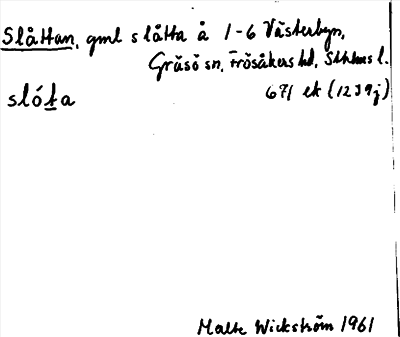 Slåttan, gml slåtta å 1-6 Västerbyn,
Gräsö sn, Frösåkers hd, Sthlms l.
slóta 671 ek (1239j)
Malte Wickström 1961